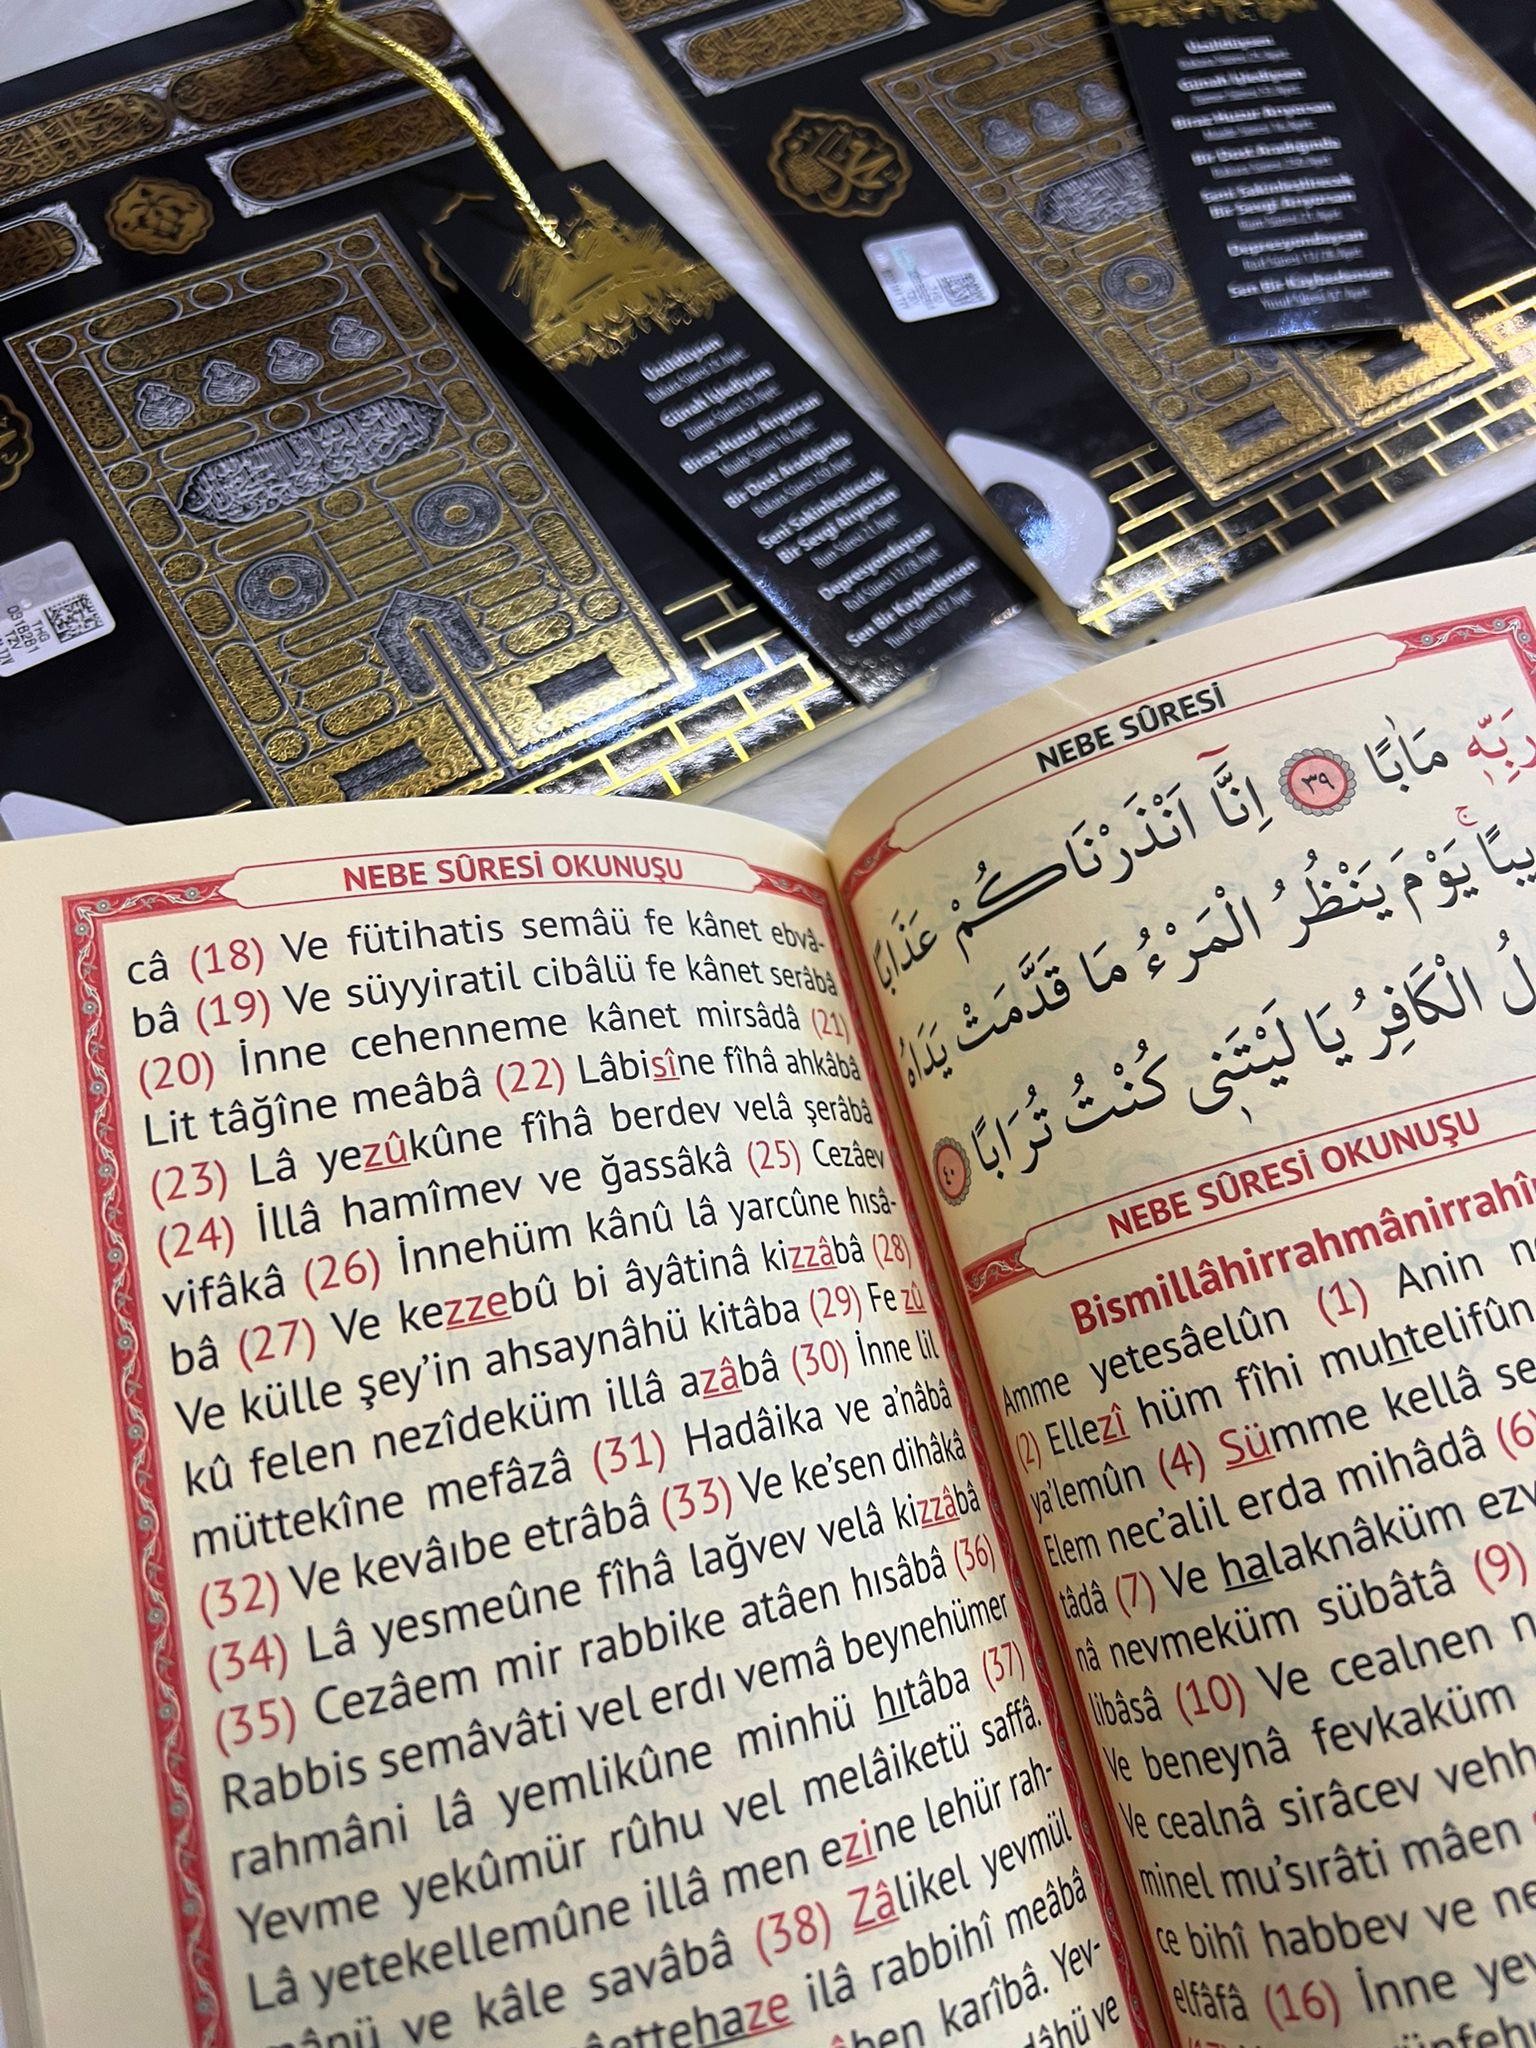 Üzüldüysen
Günah İşlediysen
Zümer Sûresi 53.Ayet
Biraz Huzur Arıyorsan
Bir Dost Aradığında
Seni Sakinleştirecek
Bir Sevgi Arıyorsan
Rum Sûresi 21.Ayet
Depresyondaysan
Rad Sûresi 13/28.Ayet
Sen Bir Kaybedensen
Yusuf Sûresi 87.Ayet
Üzüldüysen
Günah İşlediysen
Biraz Huzur Arıyorsan
Bir Dost Aradığında
Seni Sakinleştirecek
Bir Sevgi Arıyorsan
Rum Sûresi 21.Ayet
Depresyondaysan
Rad Sûresi 13/28.Ayet
Sen Bir Kaybedensen
Yusuf Sûresi 87.Ayet
THG
031B2B1
TZV
NEBE SÛRESİ OKUNUŞU
câ (18) Ve fütihatis semâü fe kânet ebvâ-
bâ (19) Ve süyyiratil cibâlü fe kânet serâbâ
(20) İnne cehenneme kânet mirsâdâ (21)
Lit tâğîne meâbâ (22) Lâbisîne fîhâ ahkâbâ
(23) Lâ yezûkûne fîhâ berdev velâ şerâbâ
(24) İllâ hamîmev ve ğassâkâ (25) Cezâev
vifâkâ (26) İnnehüm kânû lâ yarcûne hısâ-
bâ (27) Ve kezzebû bi âyâtinâ kizzâbâ (28)
Ve külle şey'in ahsaynâhü kitâba (29) Fe zû
kû felen nezîdeküm illâ azâbâ (30) İnne lil
müttekîne mefâzâ (31) Hadâika ve a'nâbâ
(32) Ve kevâıbe etrâbâ (33) Ve ke'sen dihâkâ
(34) Lâ yesmeûne fîhâ lağvev velâ kizzâbâ
(35) Cezâem mir rabbike atâen hısâbâ (36)
Rabbis semâvâti vel erdı vemâ beynehümer
rahmâni lâ yemlikûne minhü hıtâba (37)
Yevme yekûmür rûhu vel melâiketü saffâ.
Lâ yetekellemûne illâ men ezine lehür rah-
mânü ve kâle savâbâ (38) Zâlikel yevmül
ettehaze ilâ rabbihî meâbâ
karîbâ. Yev-
dâhü ve
NEBE SÛRESİ
رَبِّهٖ مَاٰبًا ﴿٣٩﴾ اِنَّٓا اَنْذَرْنَاكُمْ عَذَابًا
يبًا يَوْمَ يَنْظُرُ الْمَرْءُ مَا قَدَّمَتْ يَدَاهُ
لُ الْكَافِرُ يَا لَيْتَنٖى كُنْتُ تُرَابًا ﴿٤٠﴾
NEBE SÛRESİ OKUNUŞU
Bismillâhirrahmânirrahîm
Amme yetesâelûn (1) Anin ne
(2) Ellezî hüm fîhi muhtelifûn
ya'lemûn (4) Sümme kellâ se
Elem nec'alil erda mihâdâ (6)
tâdâ (7) Ve halaknâküm ezv
nâ nevmeküm sübâtâ (9)
libâsâ (10) Ve cealnen n
Ve beneynâ fevkaküm
Ve cealnâ sirâcev vehh
minel mu'sırâti mâen
ce bihî habbev ve ne
elfâfâ (16) İnne yev